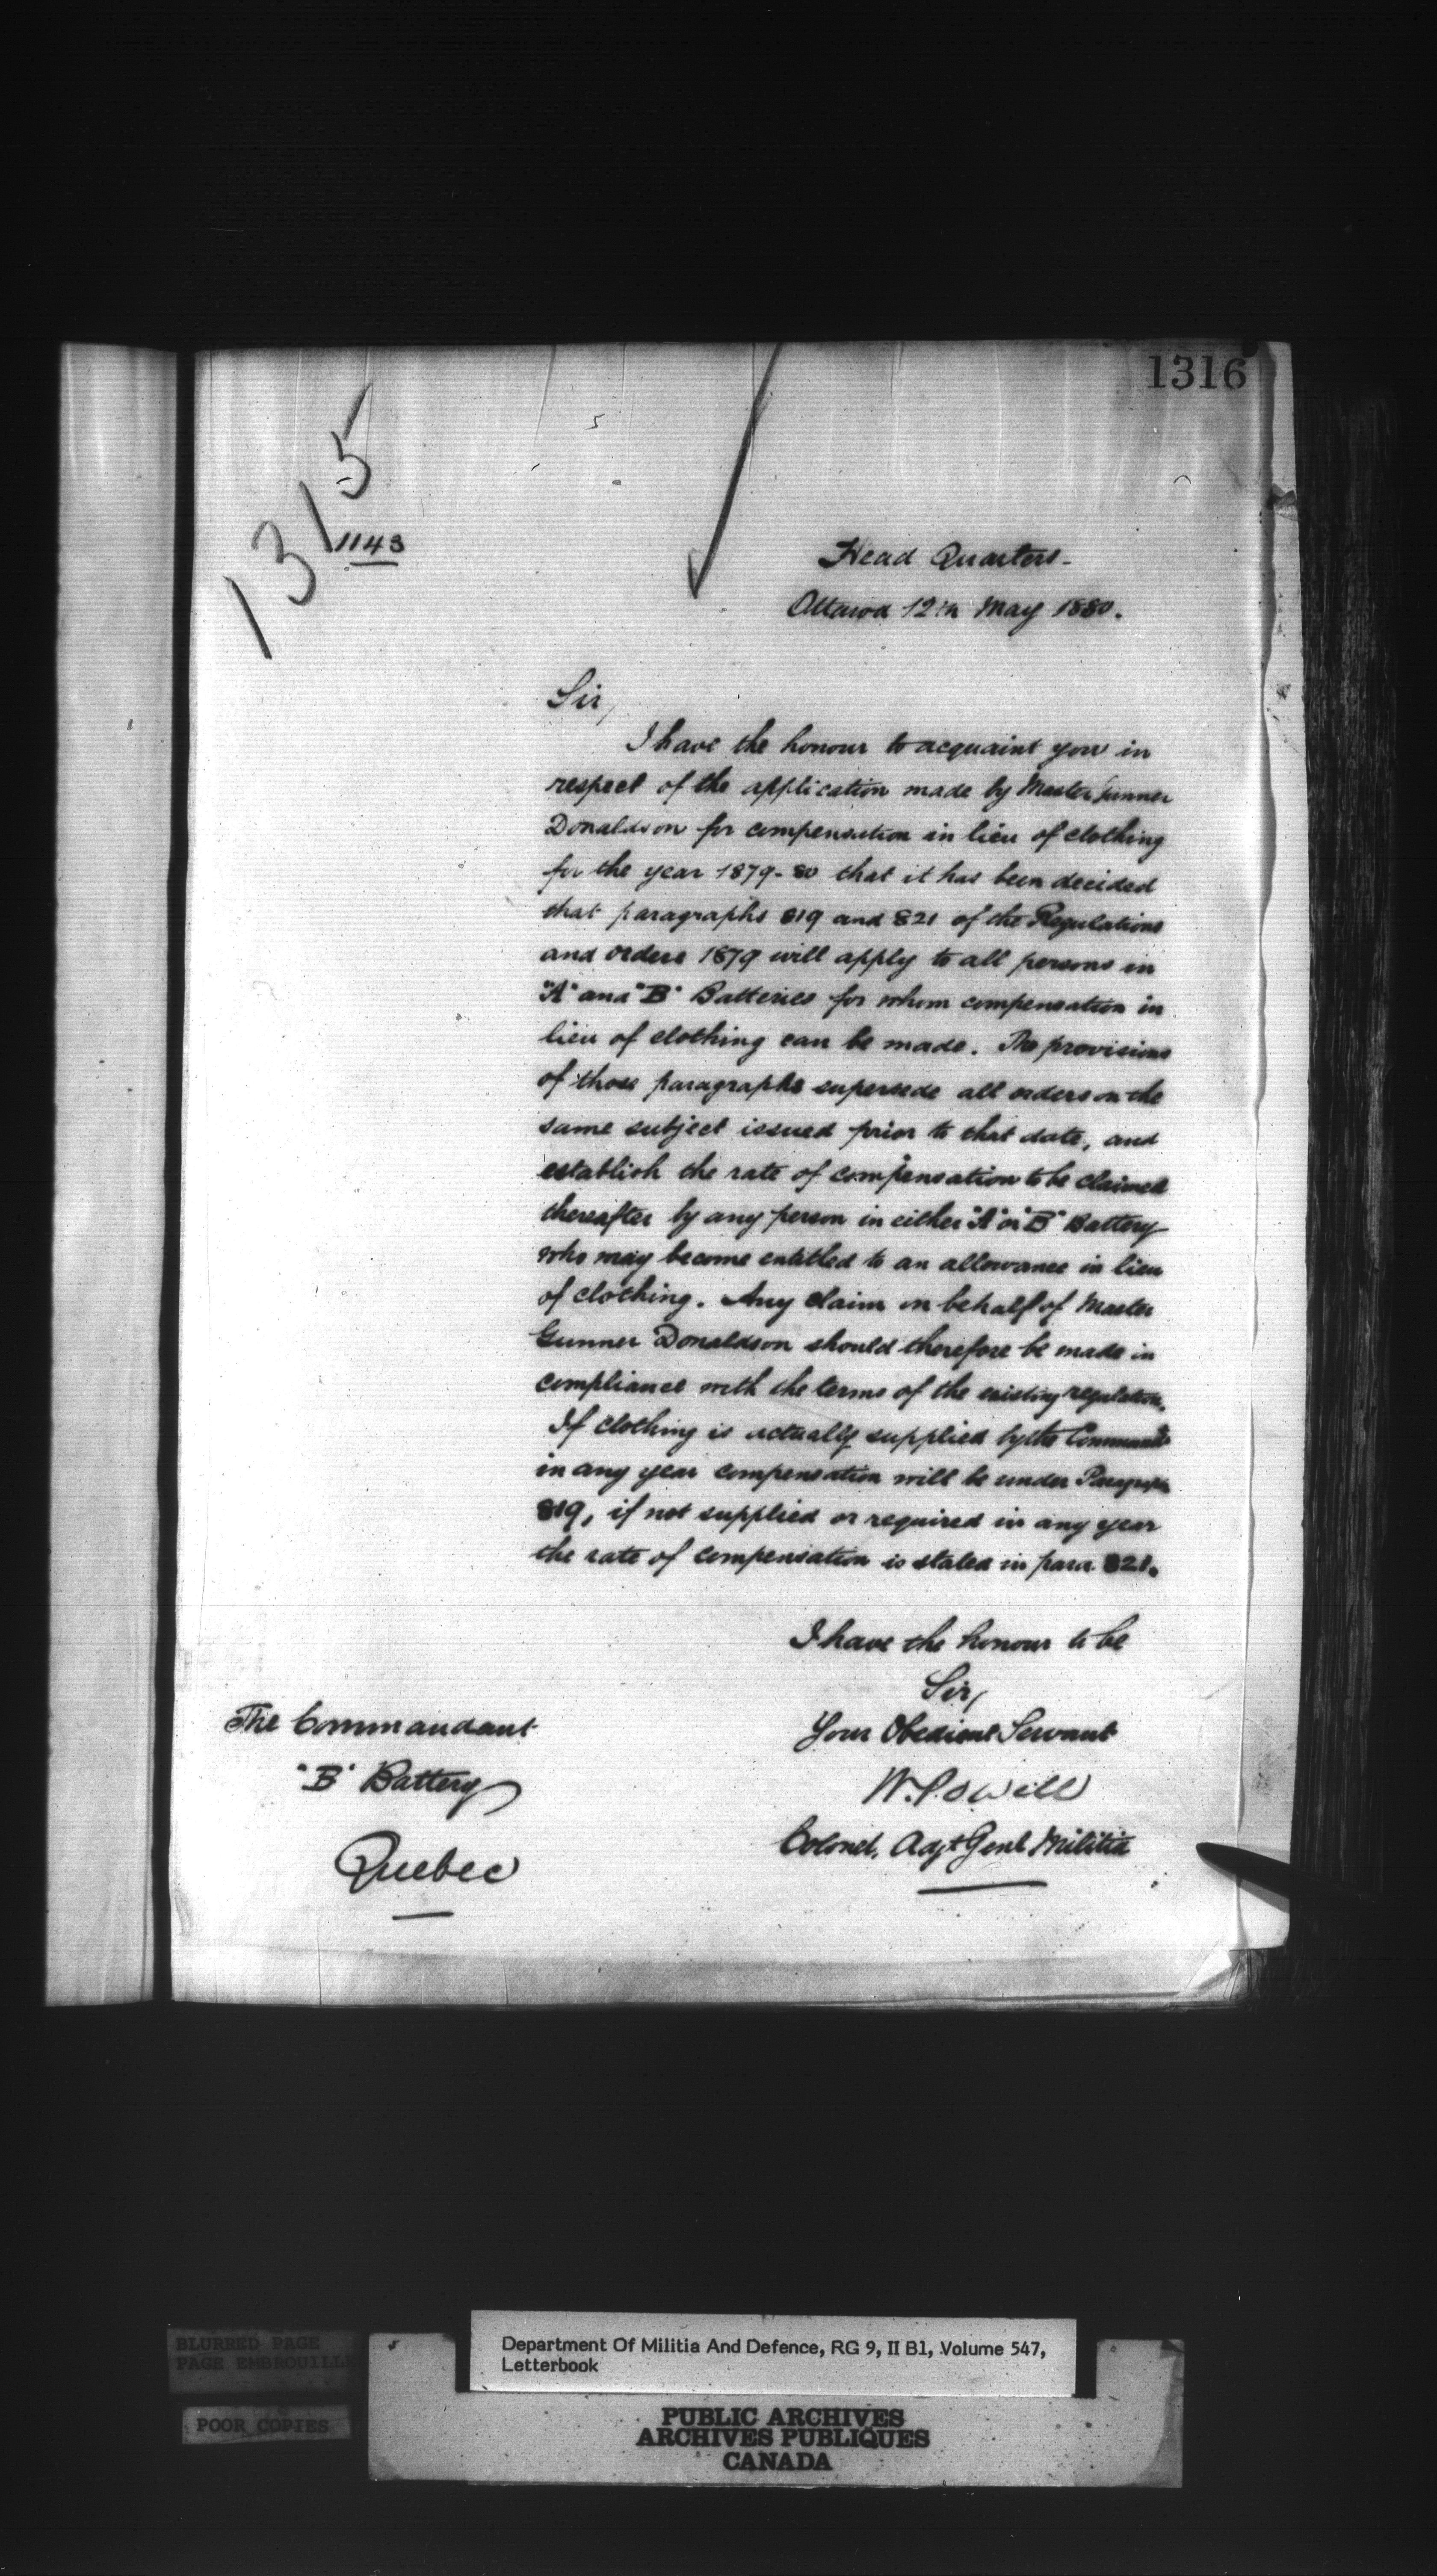 1316
1315
1143
Head Quarters-
Ottawa 12th May 1880.
Sir,
I have the honour to acquaint you in
respect of the application made by Master Gunner
Donaldson for compensation in lieu of clothing
for the year 1879-80 that it has been decided
that paragraphs 819 and 821 of the Regulations
and orders 1879 will apply to all persons in
"A" and "B" Batteries for whom compensation in
lieu of clothing can be made. The provisions
of those paragraphs supersede all orders on the
same subject issued prior to that date, and
establish the rate of compensation to be claimed
thereafter by any person in either "A" or "B" Battery
who may become entitled to an allowance in lieu
of clothing. Any claim on behalf of Master
Gunner Donaldson should therefore be made in
compliance with the terms of the existing regulation.
If clothing is actually supplied by the
in any year compensation will be under Paragraph
819, if not supplied or required in any year
the rate of compensation is stated in para. 821.
I have the honour to be
Sir,
Your Obedient Servant
W. Powell
Colonel, Adjt Genl Militia
The Commandant
"B" Battery
Quebec
BLURRED PAGE
PAGE EMBROUILLE
POOR COPIES
Department Of Militia And Defence, RG 9, II B1, Volume 547,
Letterbook
PUBLIC ARCHIVES
ARCHIVES PUBLIQUES
CANADA